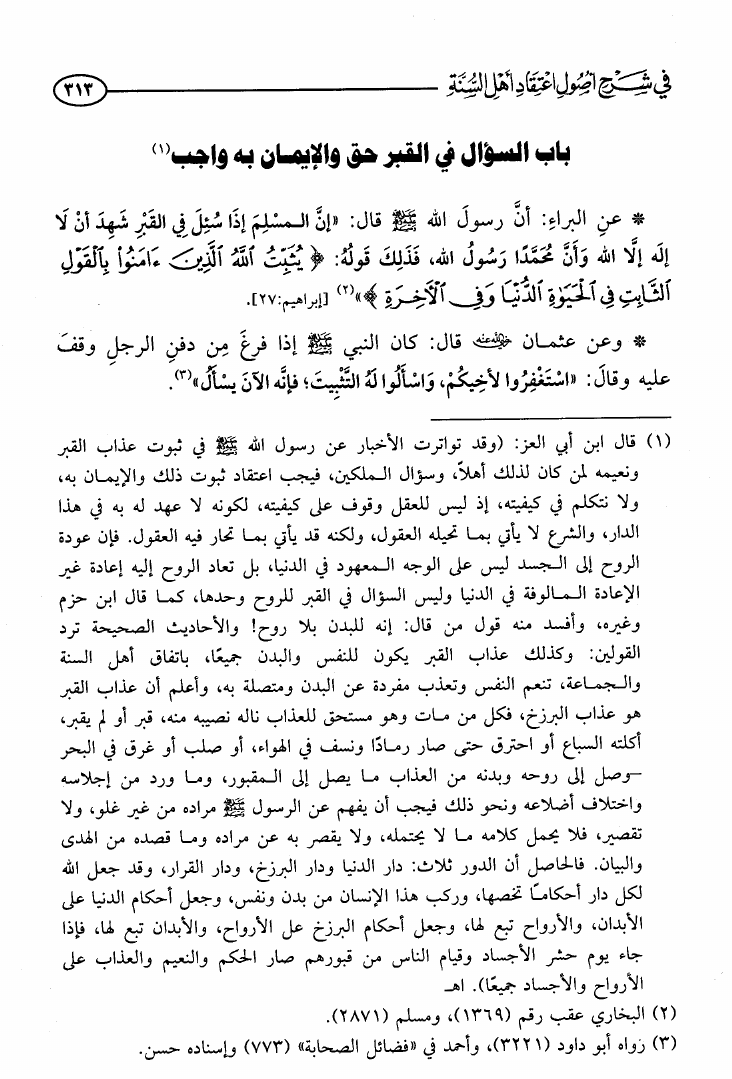 في شرح أصول اعتقاد أهل السنة
٣١٣
باب السؤال في القبر حق والإيمـان به واجب(١)
* عنِ البراءِ: أنَّ رسولَ الله ﷺ قال: «إنَّ الـمسْلِمَ إذَا سُئِلَ فِي القَبْرِ شَهِدَ أنْ لَا
إلَه إلَّا الله وَأنَّ مُحَمَّدًا رَسُولُ الله، فَذَلِكَ قَولُهُ: ﴿ يُثَبِّتُ ٱللَّهُ ٱلَّذِينَ ءَامَنُواْ بِٱلْقَوْلِ
ٱلثَّابِتِ فِي ٱلْحَيَوٰةِ ٱلدُّنْيَا وَفِي ٱلْآخِرَةِ ﴾»(٢) [إبراهيم:٢٧].
* وعن عثمـان رضي الله عنه قال: كان النبي ﷺ إذا فرغَ مِن دفنِ الرجلِ وقفَ
عليه وقالَ: «اسْتَغْفِرُوا لأخِيكُمْ، وَاسْألُوا لَهُ التَّثْبِيتَ؛ فإنَّه الآنَ يسْألُ»(٣).
(١) قال ابن أبي العز: (وقد تواترت الأخبار عن رسول الله ﷺ في ثبوت عذاب القبر
ونعيمه لمن كان لذلك أهلاً، وسؤال الـملكين، فيجب اعتقاد ثبوت ذلك والإيمـان به،
ولا نتكلم في كيفيته، إذ ليس للعقل وقوف على كيفيته، لكونه لا عهد له به في هذا
الدار، والشرع لا يأتي بمـا تحيله العقول، ولكنه قد يأتي بمـا تحار فيه العقول. فإن عودة
الروح إلى الـجسد ليس على الوجه الـمعهود في الدنيا، بل تعاد الروح إليه إعادة غير
الإعادة الـمـالوفة في الدنيا وليس السؤال في القبر للروح وحدها، كمـا قال ابن حزم
وغيره، وأفسد منه قول من قال: إنه للبدن بلا روح! والأحاديث الصحيحة ترد
القولين: وكذلك عذاب القبر يكون للنفس والبدن جميعًا، باتفاق أهل السنة
والـجمـاعة، تنعم النفس وتعذب مفردة عن البدن ومتصلة به، وأعلم أن عذاب القبر
هو عذاب البرزخ، فكل من مـات وهو مستحق للعذاب ناله نصيبه منه، قبر أو لم يقبر،
أكلته السباع أو احترق حتى صار رمـادًا ونسف في الهواء، أو صلب أو غرق في البحر
–وصل إلى روحه وبدنه من العذاب مـا يصل إلى الـمقبور، ومـا ورد من إجلاسه
واختلاف أضلاعه ونحو ذلك فيجب أن يفهم عن الرسول ﷺ مراده من غير غلو، ولا
تقصير، فلا يحمل كلامه مـا لا يحتمله، ولا يقصر به عن مراده ومـا قصده من الهدى
والبيان. فالحاصل أن الدور ثلاث: دار الدنيا ودار البرزخ، ودار القرار، وقد جعل الله
لكل دار أحكامـًا تخصها، وركب هذا الإنسان من بدن ونفس، وجعل أحكام الدنيا على
الأبدان، والأرواح تبع لها، وجعل أحكام البرزخ عل الأرواح، والأبدان تبع لها، فإذا
جاء يوم حشر الأجساد وقيام الناس من قبورهم صار الحكم والنعيم والعذاب على
الأرواح والأجساد جميعًا). اهـ
(٢) البخاري عقب رقم (١٣٦٩)، ومسلم (٢٨٧١).
(٣) زواه أبو داود (٣٢٢١)، وأحمد في «فضائل الصحابة» (٧٧٣) وإسناده حسن.